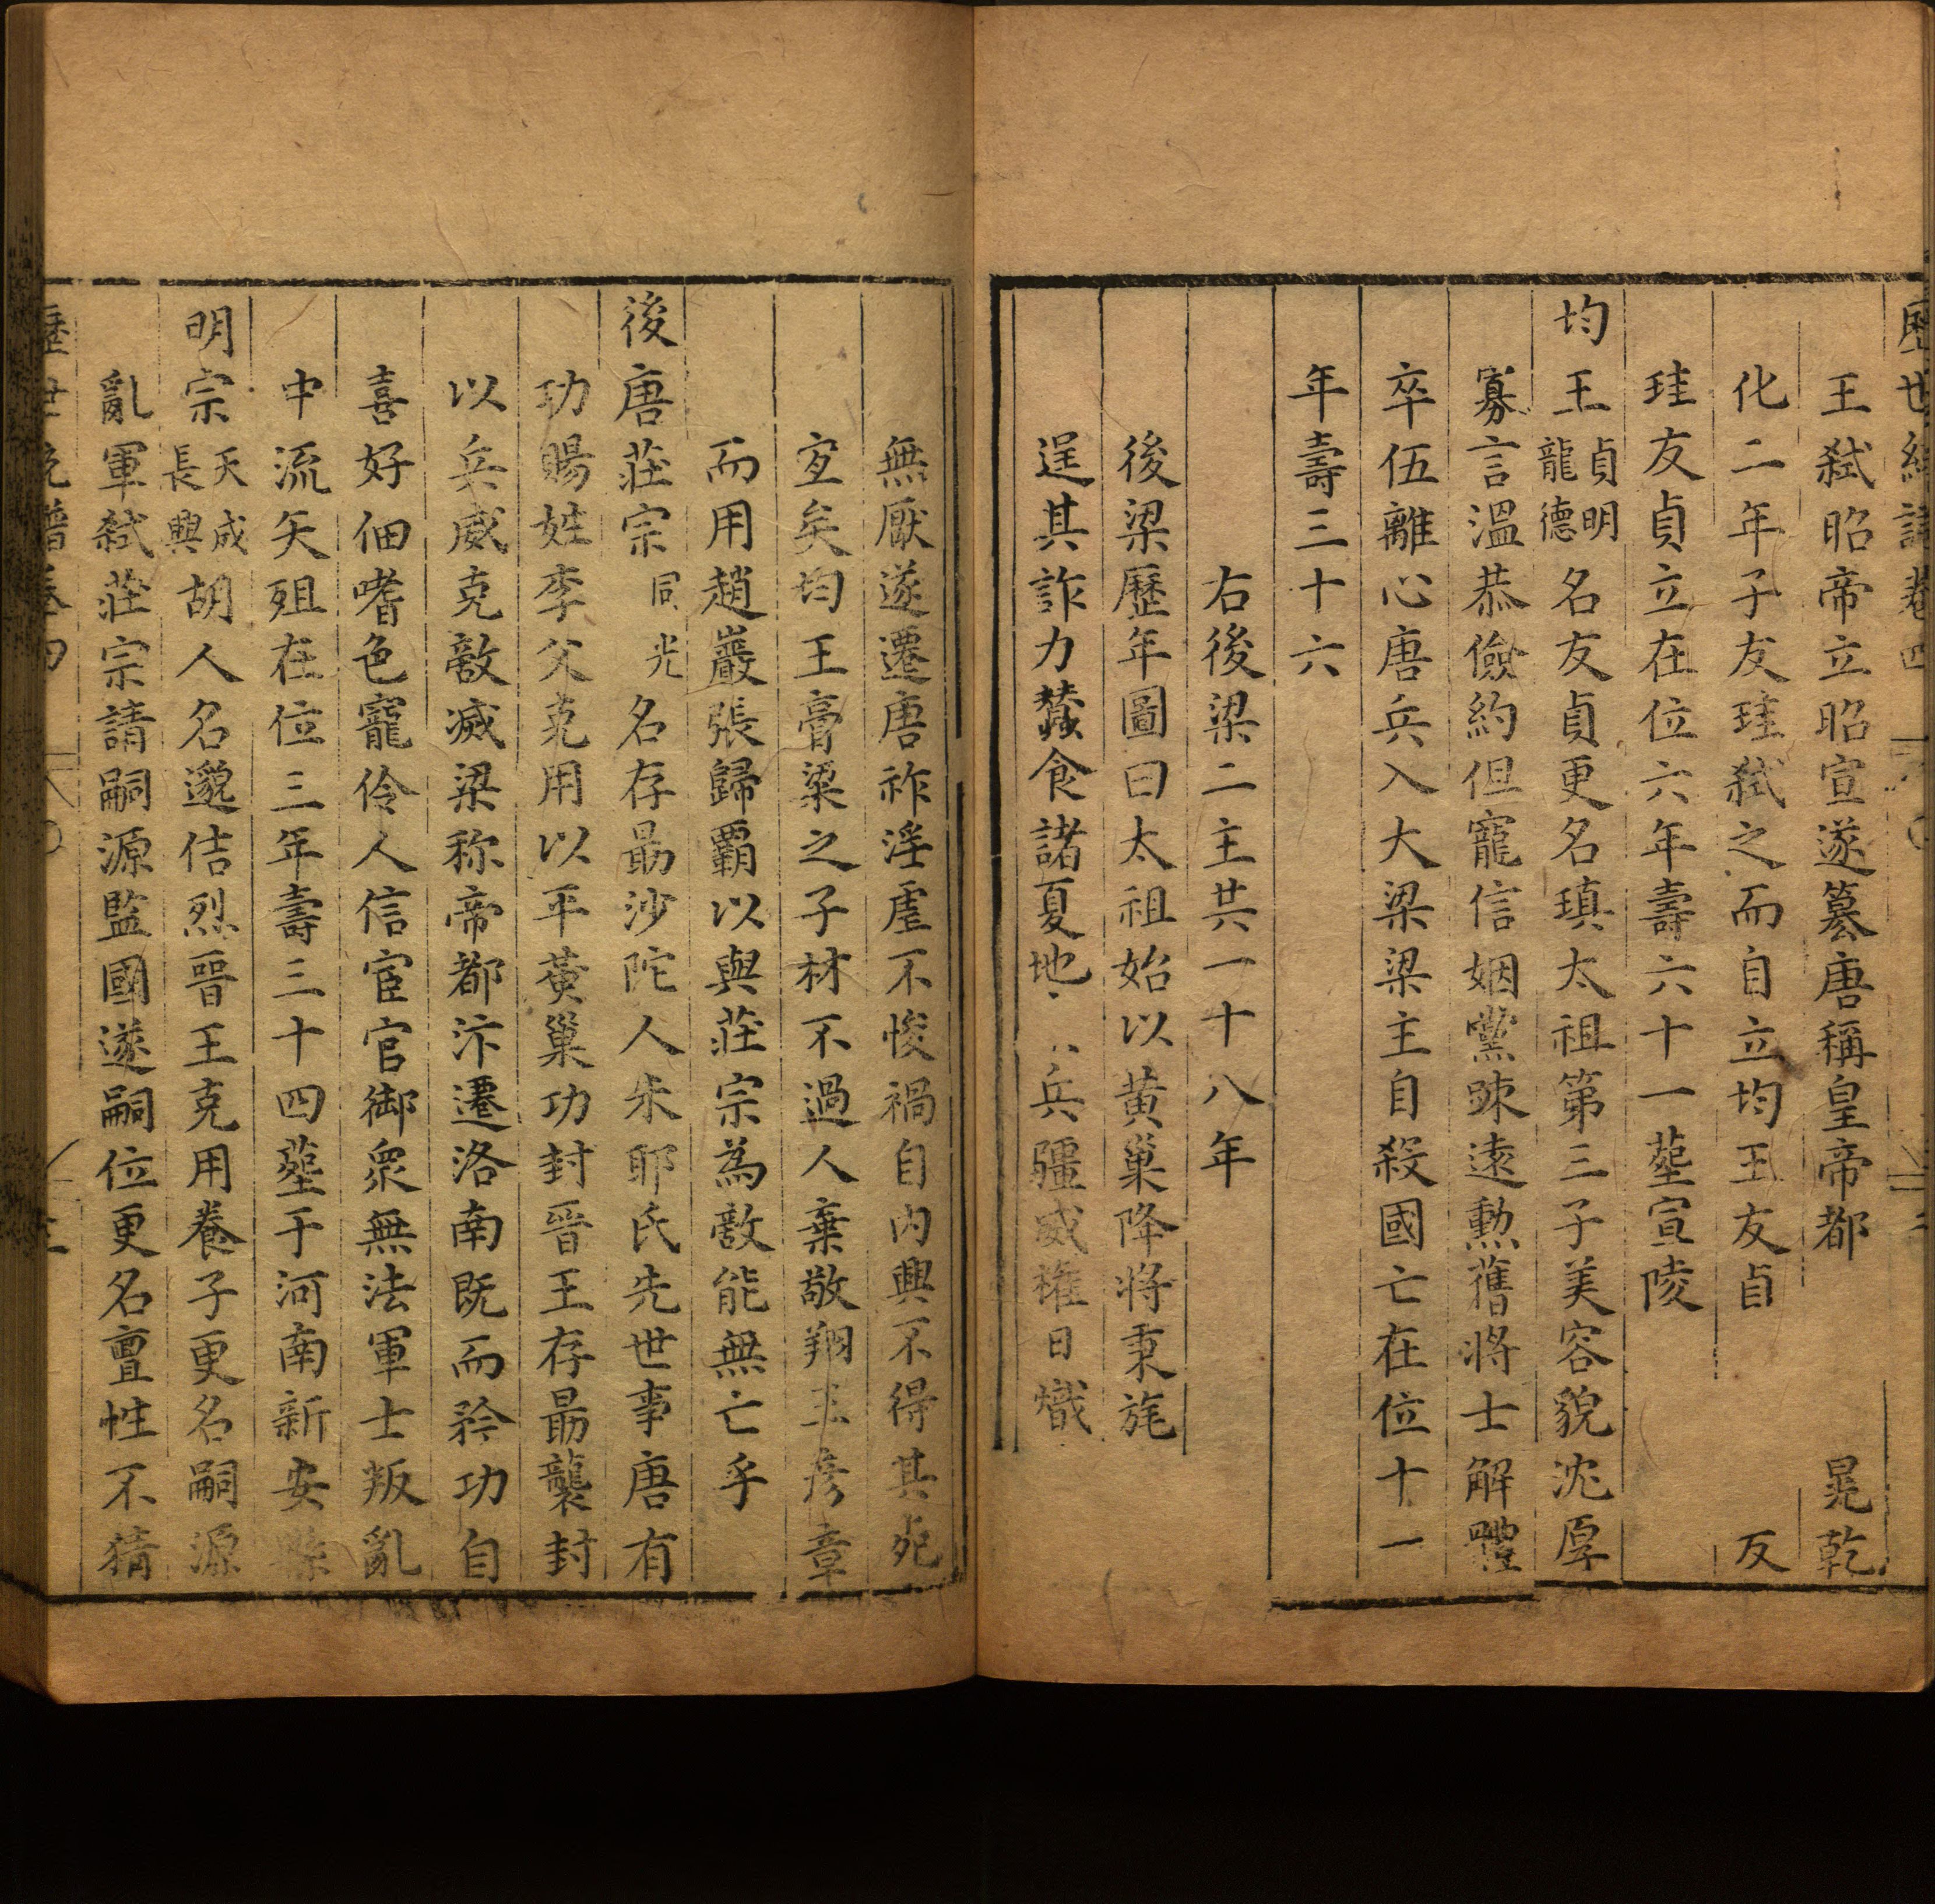 歷世統譜卷四
王弒昭帝立昭宣遂簒唐稱皇帝都 晃乾
化二年子友珪弒之而自立均王友貞 友
珪友貞立在位六年壽六十一塟宣陵
均王貞明龍德名友貞更名瑱太祖第三子美容貌沈厚
寡言溫恭儉約但寵信姻黨踈遠勲舊將士解體
卒伍離心唐兵入大梁梁主自殺國亡在位十一
年壽三十六
右後梁二主共一十八年
後梁歷年圖曰太祖始以黃巢降將秉旄
逞其詐力蠶食諸夏地 兵疆威權日熾
無厭遂遷唐祚淫虐不悛禍自內興不得其死
宜矣均王膏粱之子材不過人棄敬翔王彥章
而用趙巖張歸霸以與莊宗為敵能無亡乎
後唐莊宗同光名存勗沙陀人朱耶氏先世事唐有
功賜姓李父克用以平黃巢功封晉王存勗襲封
以兵威克敵滅梁称帝都汴遷洛南既而矜功自
喜好佃嗜色寵伶人信宦官御衆無法軍士叛亂
中流矢殂在位三年壽三十四塟于河南新安縣
明宗天成長興胡人名邈佶烈晉王克用養子更名嗣源
亂軍弒莊宗請嗣源監國遂嗣位更名亶性不猜
歷世統譜卷四